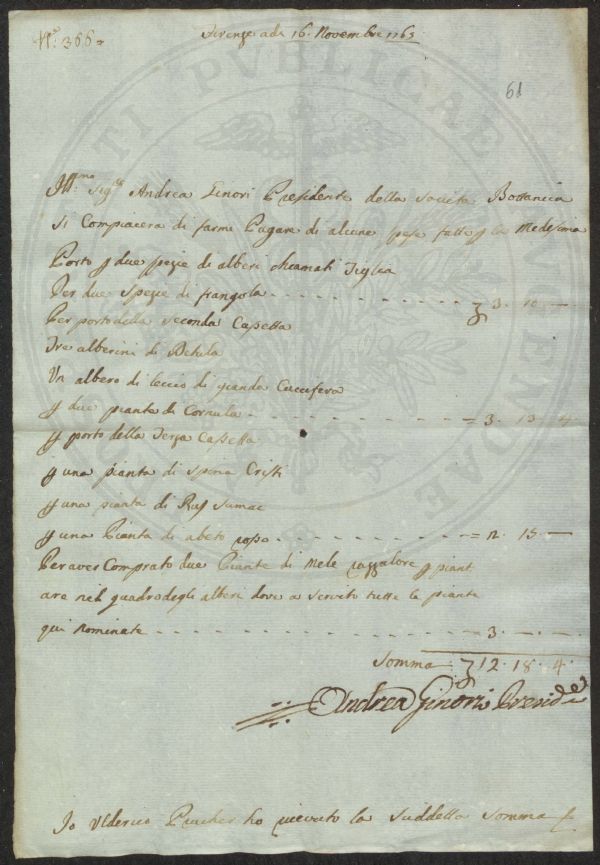 N.° 366
Firenze adi 16. Novembre 1763
61
Ill.mo Sig.re Andrea Ginori Presidente della Società Bottanica
Si Compiacera di farmi Pagare di alcune spese fatte p la Medesima
Porto p due spezie di alberi chiamati Tiglia
Per due Spezie di frangola - - - 3. 10. —
Per porto della seconda Cassetta
Tre alberini di Betula
Un albero di leccio di gianda
p due pianta di Cornula - - - = 3. 13. 4.
p porto della Terza Cassetta
p una pianta di Spina Cristi
p una pianta di Rus Sumac
p una Pianta di abeto rosso - - - = 2. 15. —
Per aver Comprato due Piante di Mele p piant
are nel quadro degli alberi dove a servito tutte le piante
qui Nominate - - - 3. — . —
Somma 12. 18. 4.
Andrea Ginori Presid.e
Io ho ricevuto la suddetta Somma
TI PVBLICAE